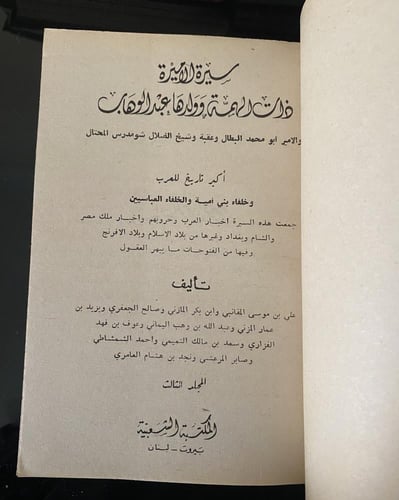 سيرة الاميرة
ذات الهمة وولدها عبد الوهاب
والامير ابو محمد البطال وعقبة وشيخ الضلال شومدرس المحتال
أكبر تاريخ للعرب
وخلفاء بني امية والخلفاء العباسيين
جمعت هذه السيرة اخبار العرب وحروبهم واخبار ملك مصر
والشام وبغداد وغيرها من بلاد الاسلام وبلاد الافرنج
وفيها من الفتوحات ما يبهر العقول
تأليف
علي بن موسى المقانبي وابن بكر المازني وصالح الجعفري ويزيد بن
عمار المزني وعبد الله بن وهب اليماني وعوف بن فهد
الفزاري وسعد بن مالك التميمي واحمد الشمشاطي
وصابر المرعشي ونجد بن هشام العامري
المجلد الثالث
المكتبة الشعبية
بيروت - لبنان